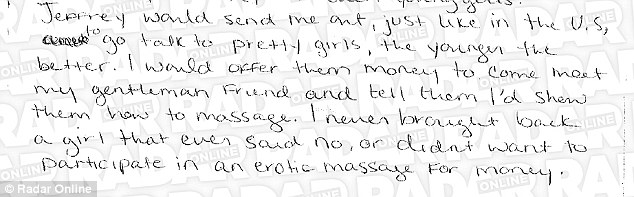 Jeffrey would send me out, just like in the U.S,
to go talk to pretty girls, the younger the
better. I would offer them money to come meet
my gentleman Friend and tell them I'd show
them how to massage. I never brought back
a girl that ever said no, or didnt want to
participate in an erotic massage for money.
© Radar Online